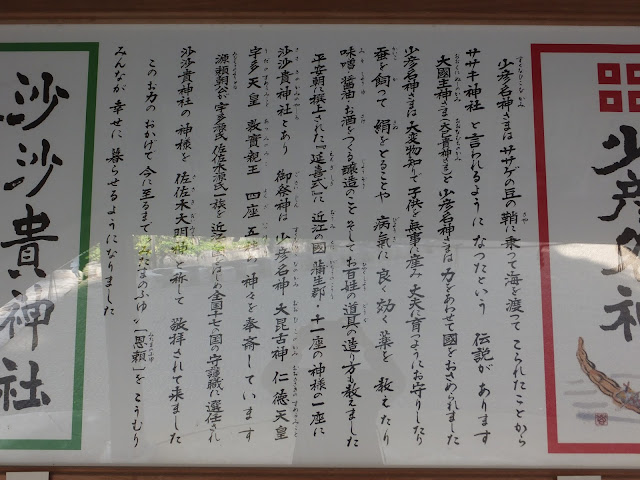 少彦名神
少彦名神さまは ササゲの豆の鞘に 乗って 海を渡って こられたことから
ササキ神社 と言われるように なったという 伝説が あります
大國主神さま(大己貴神さま)と 少彦名神さまは 力をあわせて 國をおさめられました
少彦名神さまは 大変物知りで 子供を 無事に産み 丈夫に育つようにお守りしたり
蚕を飼って 絹をとることや 病氣に 良く効く 薬を 教えたり
味噌 醤油 お酒をつくる 醸造のこと そしてお百姓の道具の造り方も教えました
平安朝に撰上された『延喜式』に 近江の國 蒲生郡・十一座の神様の一座に
沙沙貴神社とあり 御祭神は 少彦名神 大毘古神 仁徳天皇
宇多天皇 敦實親王 四座五柱の 神々を 奉斎しています
源頼朝公が 宇多源氏 佐佐木源氏一族を 近江をはじめ 全国十七の国の守護職に選任され
沙沙貴神社の 神様を 佐佐木大明神と称して 敬拝されて来ました
このお力の おかげで 今に至るまで "みたまのふゆ"「恩頼」を こうむり
みんなが 幸せに 暮らせるようになりました
沙沙貴神社